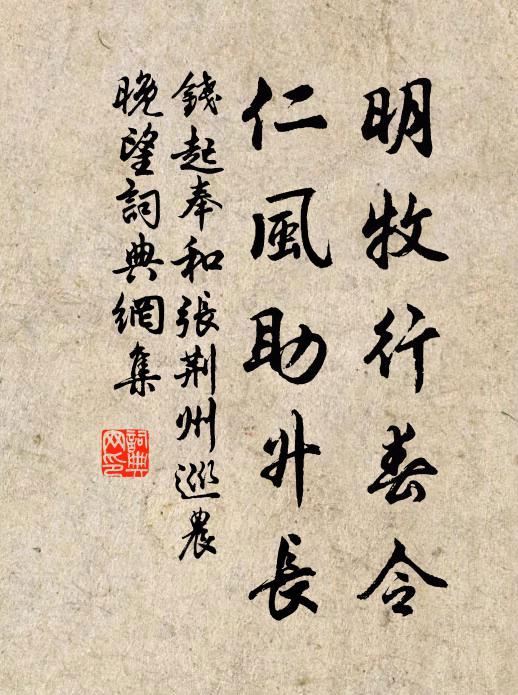 明牧行春令
仁風助升長
錢起奉和張荆州巡農
晚望詞典網集
詞典
网印